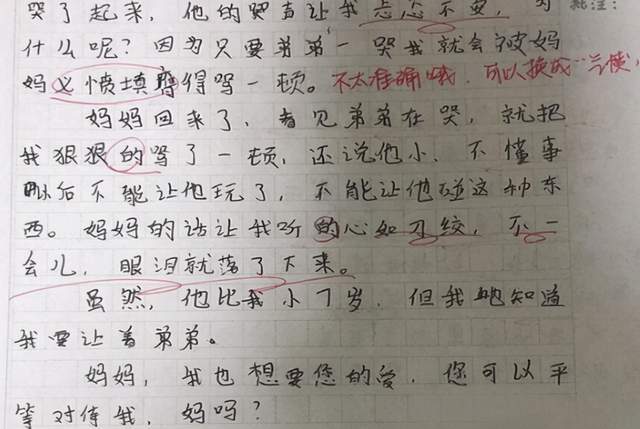 哭了起来，他的哭声让我忐忑不安，为
批注：
什么呢？因为只要弟弟一哭我就会被妈
妈义愤填膺得骂一顿。不太准确哦，可以换成
妈妈回来了，看见弟弟在哭，就把
我狠狠的骂了一顿，还说他小，不懂事
以后不能让他玩了，不能让他碰这种东
西。妈妈的话让我听的心如刀绞，不一
会儿，眼泪就落了下来。
虽然，他比我小7岁，但我她知道
我要让着弟弟。
妈妈，我也想要您的爱，您可以平
等对待我，妈吗？